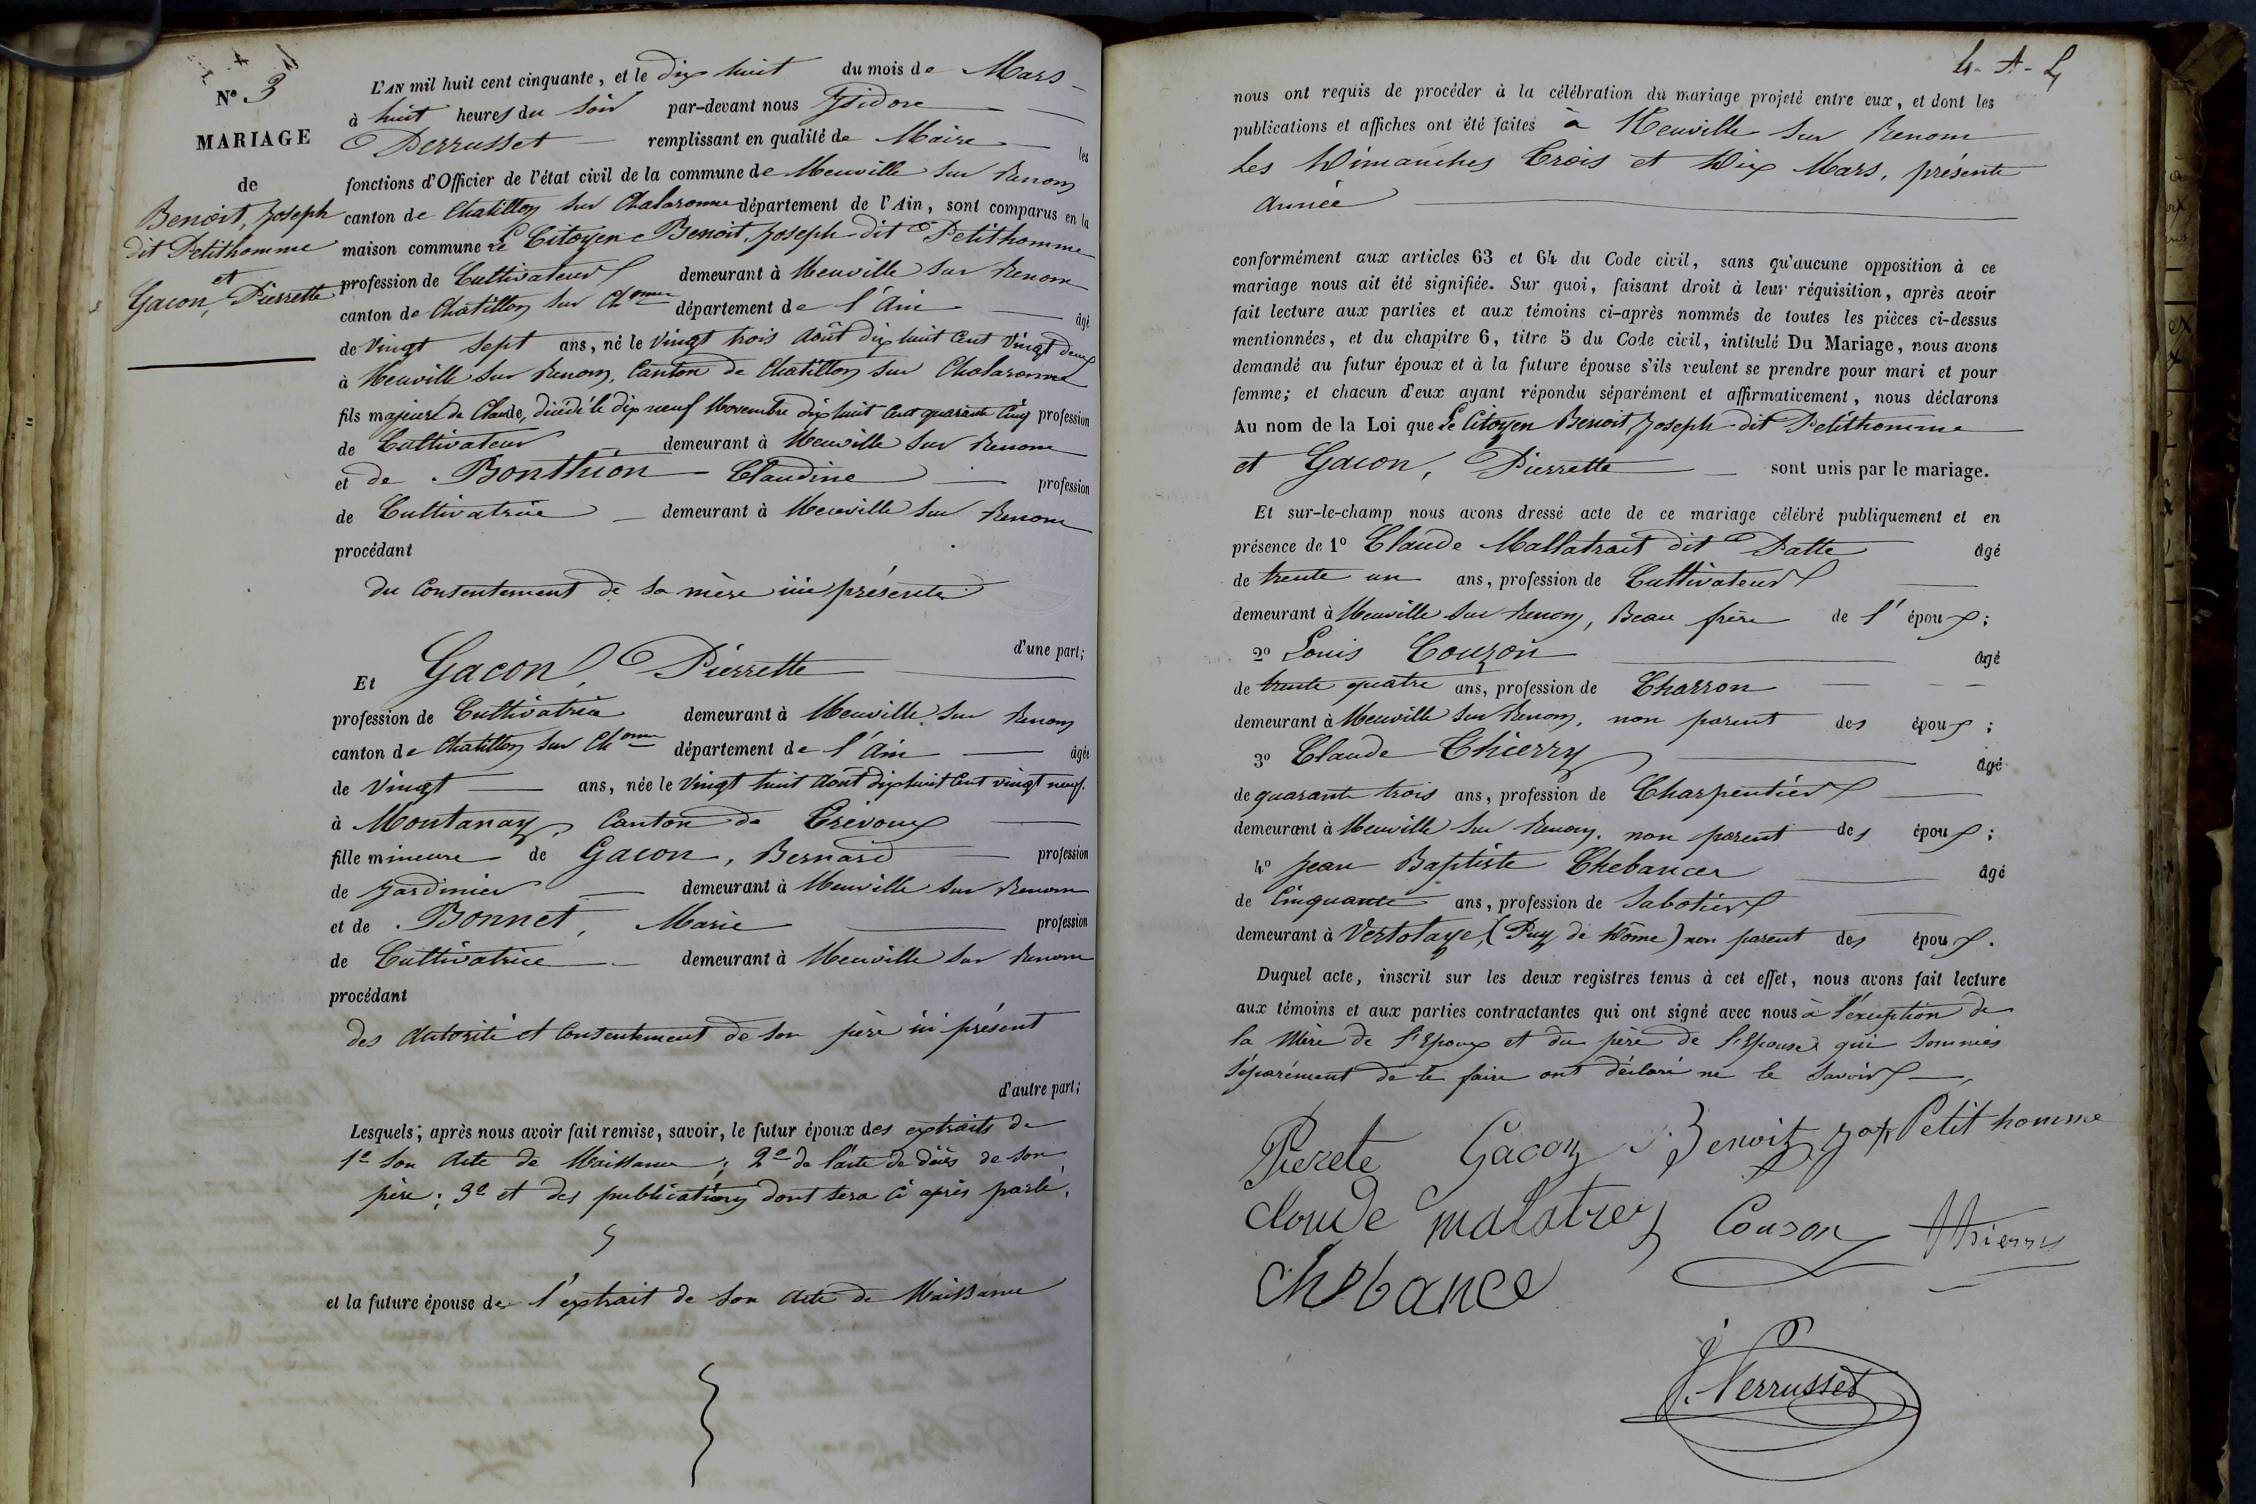 Nº 3
MARIAGE
de
Benoit, Joseph
dit Petithomme
et
Gacon, Pierrette
L'AN mil huit cent cinquante, et le dix huit du mois de Mars
à huit heures du soir par-devant nous Isidore
Perrusset remplissant en qualité de Maire les
fonctions d'Officier de l'état civil de la commune de Neuville sur Renom
canton de Chatillon sur Chalaronne département de l'Ain, sont comparus en la
maison commune Le Citoyen Benoit, Joseph dit Petithomme
profession de Cultivateur demeurant à Neuville sur Renom
canton de Chatillon sur Chonne département de l'Ain âgé
de vingt sept ans, né le vingt trois août dix huit cent vingt deux
à Neuville sur Renom, Canton de Chatillon sur Chalaronne
fils majeur de Claude, décédé le dix neuf Novembre dix huit cent quarante cinq profession
de Cultivateur demeurant à Neuville sur Renom
et de Bonthion Claudine profession
de Cultivatrice demeurant à Neuville sur Renom
procédant
du consentement de sa mère ici présente
d'une part;
Et Gacon, Pierrette
profession de Cultivatrice demeurant à Neuville sur Renom
canton de Chatillon sur Chonne département de l'Ain âgée
de vingt ans, née le vingt huit août dix huit cent vingt neuf.
à Montanay, Canton de Trévoux
fille mineure de Gacon, Bernard profession
de Jardinier demeurant à Neuville sur Renom
et de Bonnet, Marie profession
de Cultivatrice demeurant à Neuville sur Renom
procédant
des autorité et consentement de son père ici présent
d'autre part;
Lesquels; après nous avoir fait remise, savoir, le futur époux des extraits de
1º son acte de Naissance; 2º de l'acte de décès de son
père; 3º et des publications dont sera ci après parlé.
et la future épouse de l'extrait de son acte de Naissance
4 - A - L
nous ont requis de procéder à la célébration du mariage projeté entre eux, et dont les
publications et affiches ont été faites à Neuville sur Renom
les Dimanches Trois et Dix Mars, présente
année
conformément aux articles 63 et 64 du Code civil, sans qu'aucune opposition à ce
mariage nous ait été signifiée. Sur quoi, faisant droit à leur réquisition, après avoir
fait lecture aux parties et aux témoins ci-après nommés de toutes les pièces ci-dessus
mentionnées, et du chapitre 6, titre 5 du Code civil, intitulé Du Mariage, nous avons
demandé au futur époux et à la future épouse s'ils veulent se prendre pour mari et pour
femme; et chacun d'eux ayant répondu séparément et affirmativement, nous déclarons
Au nom de la Loi que Le Citoyen Benoit, Joseph dit Petithomme
et Gacon, Pierrette sont unis par le mariage.
Et sur-le-champ nous avons dressé acte de ce mariage célébré publiquement et en
présence de 1º Claude Mallatrait dit Patte âgé
de trente un ans, profession de Cultivateur
demeurant à Neuville sur Renom, Beau frère de l'époux;
2º Louis Couzon âgé
de trente quatre ans, profession de Charron
demeurant à Neuville sur Renom, non parent des époux;
3º Claude Thierry âgé
de quarante trois ans, profession de Charpentier
demeurant à Neuville sur Renom, non parent des époux;
4º Jean Baptiste Chebancer âgé
de Cinquante ans, profession de Sabotier
demeurant à Vertolaye, (Puy de Dôme) non parent des époux.
Duquel acte, inscrit sur les deux registres tenus à cet effet, nous avons fait lecture
aux témoins et aux parties contractantes qui ont signé avec nous à l'exception de
la Mère de l'Epoux et du père de l'Epouse qui sommés
séparément de le faire ont déclaré ne le savoir
Pierete Gacon Benoit Jos Petit homme
Cloude malatrey Couzon Thierry
Chebance
J. Perrusset